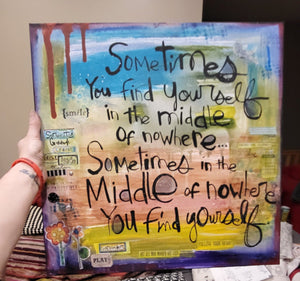 Sometimes
You find yourself
[smile]
in the middle
of nowhere...
Sometimes in the
Middle of nowhere
You find yourself
PLAY
FOLLOW YOUR HEART